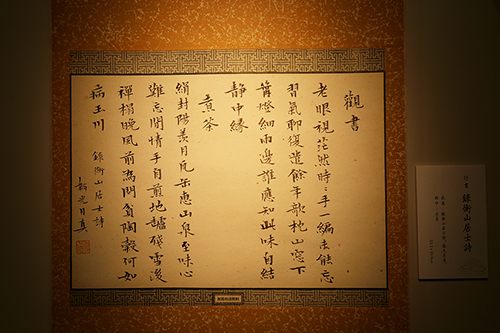 觀書
老眼視茫然時〻手一編未能忘
習氣聊復遣餘年欹枕山窓下
篝燈細雨邊誰應知此味自結
靜中緣
煮茶
絹封陽羨月瓦缶惠山泉至味心
難忘閒情手自煎地爐殘雪後
禪榻晚風前為問貧陶穀何如
病玉川
錄衡山居士詩
行書
錄衡山居士詩